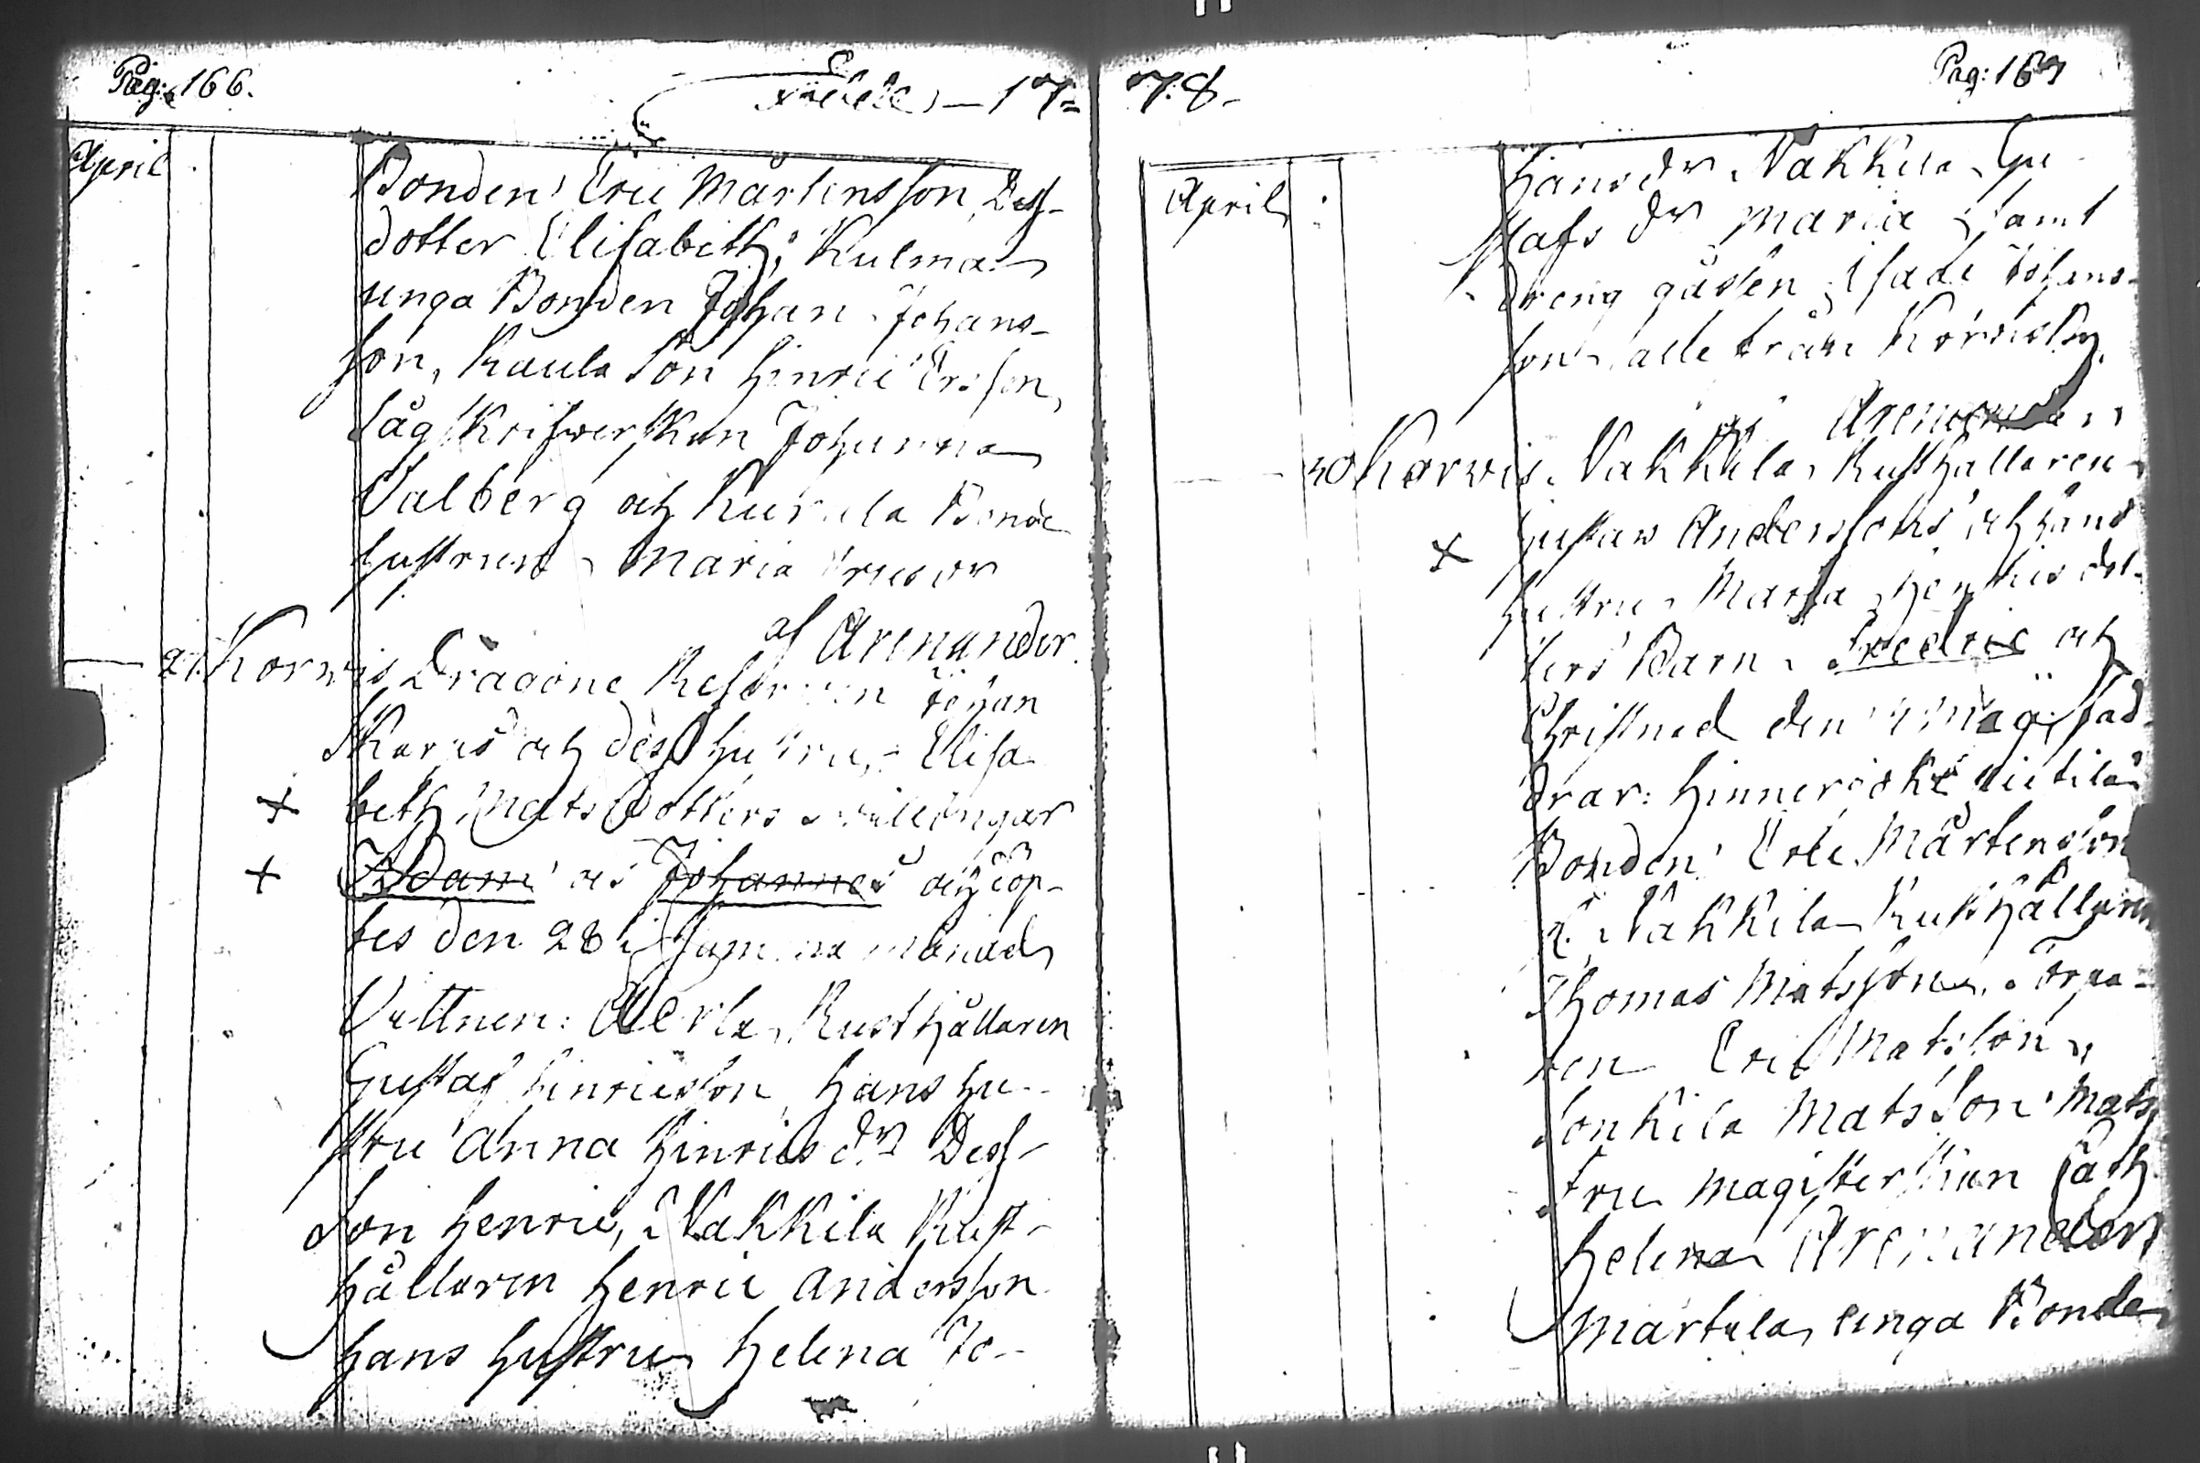 Pag: 166.
Födde 17=
April
Bonden Eric Mårtensson, Dess
dotter Elisabeth; Kulmala
unga Bonden Johan Johans-
son, Kaula Son Hinric Ersson,
Såg Skrifwerskan Johanna
Valberg och Kurala Bonde
hustrun Maria Ericsdr
af Arenander.
27. Korvis Dragone Reserven Johan
Skarus och dess hustru, Elisa
beth Matsdotters twillingar
Adam och Johannes och döp-
tes den 28 i samma månad
Vittnen: Aerla, Rusthållaren
Gustaf Hinricsson, hans hu-
stru Anna Hinricsdr Dess
Son Henric, Nakkila Rust-
hållaren Henric Andersson
hans hustru Helena Jo-
78.
Pag: 167
April
hansdr Nakkila Gu
stafs dr Maria samt
Dreng gåssen Isaac Johans-
son alle från Körvis By.
af Arenander
30 Korvis Nakkila Rusthållaren
Gustav Anderssons och hans
hustru Maria Henricsdot-
ters Barn Fredric och
Christnad den Maji fad-
drar: Hinnerjoki
Bonden Eric Mårtensson
K. Nakkila Rusthållaren
Thomas Matsson, Torpa-
ren Eric Matsson,
Sonkila Matsson Mats
Fru Magisterskan Cath.
Helena Arenander
Martula, unga Bonde